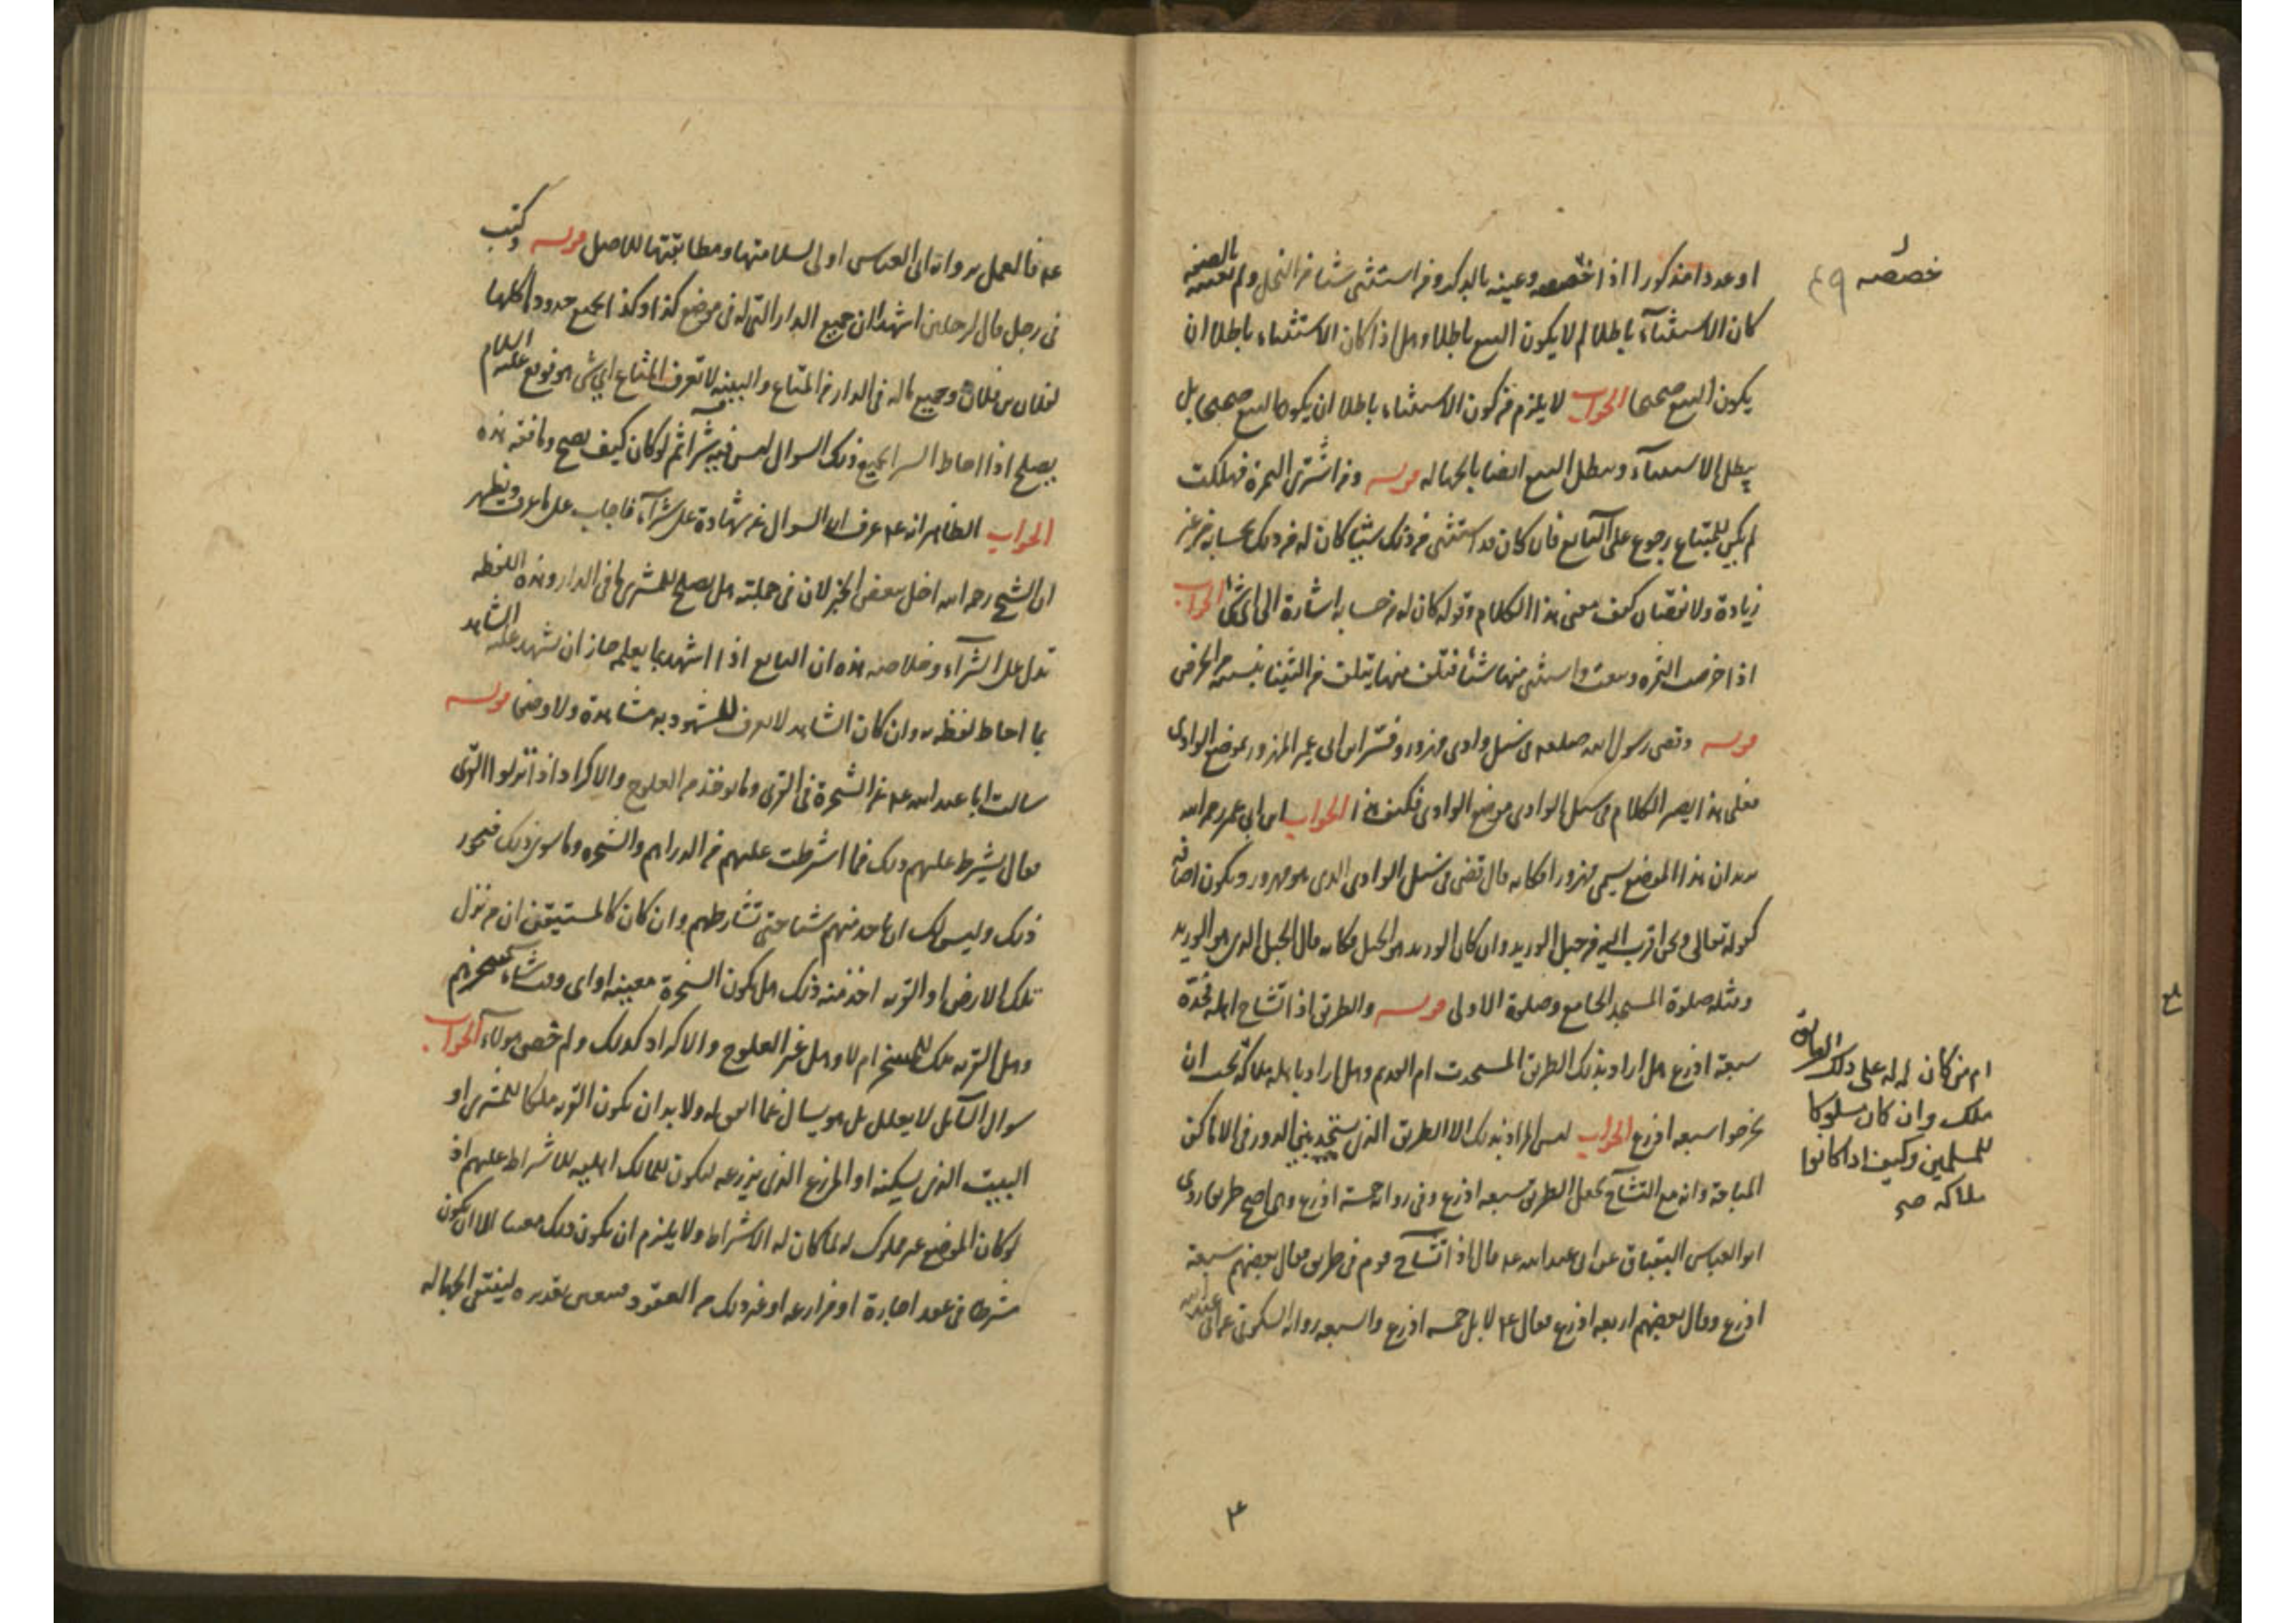 او عددا مذكورا اذا خصصه وعينه بالذكر ومن استثنى شيئا من النخل ولم يعينه بالصفة
كان الاستثناء باطلا لم لا يكون البيع باطلا وهل اذا كان الاستثناء باطلا ان
يكون البيع صحيحا الجواب لا يلزم من كون الاستثناء باطلا ان يكون البيع صحيحا بل
يبطل الاستثناء ويبطل البيع ايضا بالجهالة قوله ومن اشترى الثمرة فهلكت
لم يكن للمبتاع رجوع على البايع فان كان قد استثنى من ذلك شيئا كان له من ذلك بحسابه من غير
زيادة ولا نقصان كيف معنى هذا الكلام وقوله كان له من حسابه اشارة الى اي شئ الجواب
اذا خرصت الثمرة وبيعت واستثنى منها شيئا فتلف منها يتلف من الثنيا بنسبته
قوله وقضى رسول الله صلعم في سيل وادي مهزور وفسر ابن ابي عمير المهزور بموضع الوادي
فعلى هذا يصير الكلام في سيل الوادي موضع الوادي فكيف هذا الجواب ابن ابي عمير رحمه الله
يريد ان هذا الموضع يسمى مهزور فكانه قال قضى في سيل الوادي الذي هو مهزور ويكون اضافة
كقوله تعالى ونحن اقرب اليه من حبل الوريد وان كان الوريد هو الحبل فكانه قال الحبل الذي هو الوريد
ومثله صلوة المسجد الجامع وصلوة الاولى قوله والطريق اذا تشاح اهله فحده
سبعة اذرع هل اراد بذلك الطريق المستحدث ام القديم وهل اراد باهله ملاكه تحت ان
يخرجوا سبعة اذرع الجواب ليس المراد بذلك الا الطريق الذي يستجد بين الدور في الاماكن
المباحة وانه مع التشاح تجعل الطريق سبعة اذرع وفي رواية خمسة اذرع وهي اصح طريقا روى
ابو العباس البقباق عن ابي عبد الله ع قال اذا تشاح قوم في طريق فقال بعضهم سبعة
اذرع وقال بعضهم اربعة اذرع فقال ع لا بل خمسة اذرع والسبعة رواية السكوني عن ابي عبد الله
خصصه
ام من كان له على ذلك
ملك وان كان مسلوكا
للمسلمين وكيف اذا كانوا
ملاكه صح
ع فالعمل برواية ابي العباس اولى لسلامتها ومطابقتها للاصل قوله وكتب
في رجل قال لرجلين اشهدا ان جميع الدار التي له في موضع كذا وكذا بجميع حدودها كلها
لفلان بن فلان وجميع ماله في الدار من المتاع والبينة لا تعرف المتاع اي شئ هو فوقع عليه السلام
يصلح اذا احاط الشراء بجميع ذلك السؤال ليس فيه شراء ثم لو كان كيف يصح وما فقه هذه
الجواب الظاهر انه ع عرف ان السوال عن شهادة على شراء فاجاب على ما عرف ويظهر
ان الشيخ رحمه الله اخل ببعض الخبر لان في جملته هل يصلح للمشتري ما في الدار وهذه اللفظة
تدل على الشراء وخلاصة هذه ان البايع اذا اشهد بما يعلم جاز ان يشهد عليه الشاهد
بما احاط لفظه به وان كان الشاهد لا يعرف المشهود به مشاهدة ولا وصفا قوله
سالت ابا عبد الله ع عن السخرة في القرى وما يوخذ من العلوج والاكراد اذا نزلوا القرى
فقال يشترط عليهم ذلك فما اشترطت عليهم من الدراهم والسخرة وما سوى ذلك فيجوز
ذلك وليس لك ان تاخذ منهم شيئا حتى تشارطهم وان كان كالمستيقن ان من نزل
تلك الارض او القرية اخذ منه ذلك هل يكون السخرة معينة او اي وقت شاء
وهل القرية ملك ام لا وهل غير العلوج والاكراد كذلك ولم خص هولاء الجواب
سوال السائل لا يعلل بل هو يسال عما اتفق له ولا بد ان يكون القرية ملكا للمشتري او
البيت الذي يسكنه او المزرع الذي يزرعه ليكون للمالك اهلية للاشتراط عليهم اذ
لو كان الموضع غير مملوك له لما كان له الاشتراط ولا يلزم ان يكون ذلك معينا الا ان يكون
شرطا في عقد اجارة او مزارعة او غير ذلك من العقود فيتعين تقديره لينتفي الجهالة